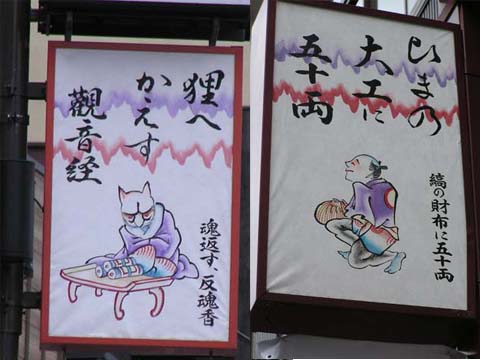 狸へ
かえす
觀音経
魂返す、反魂香
ひまの
大工に
五十両
縞の財布に五十両